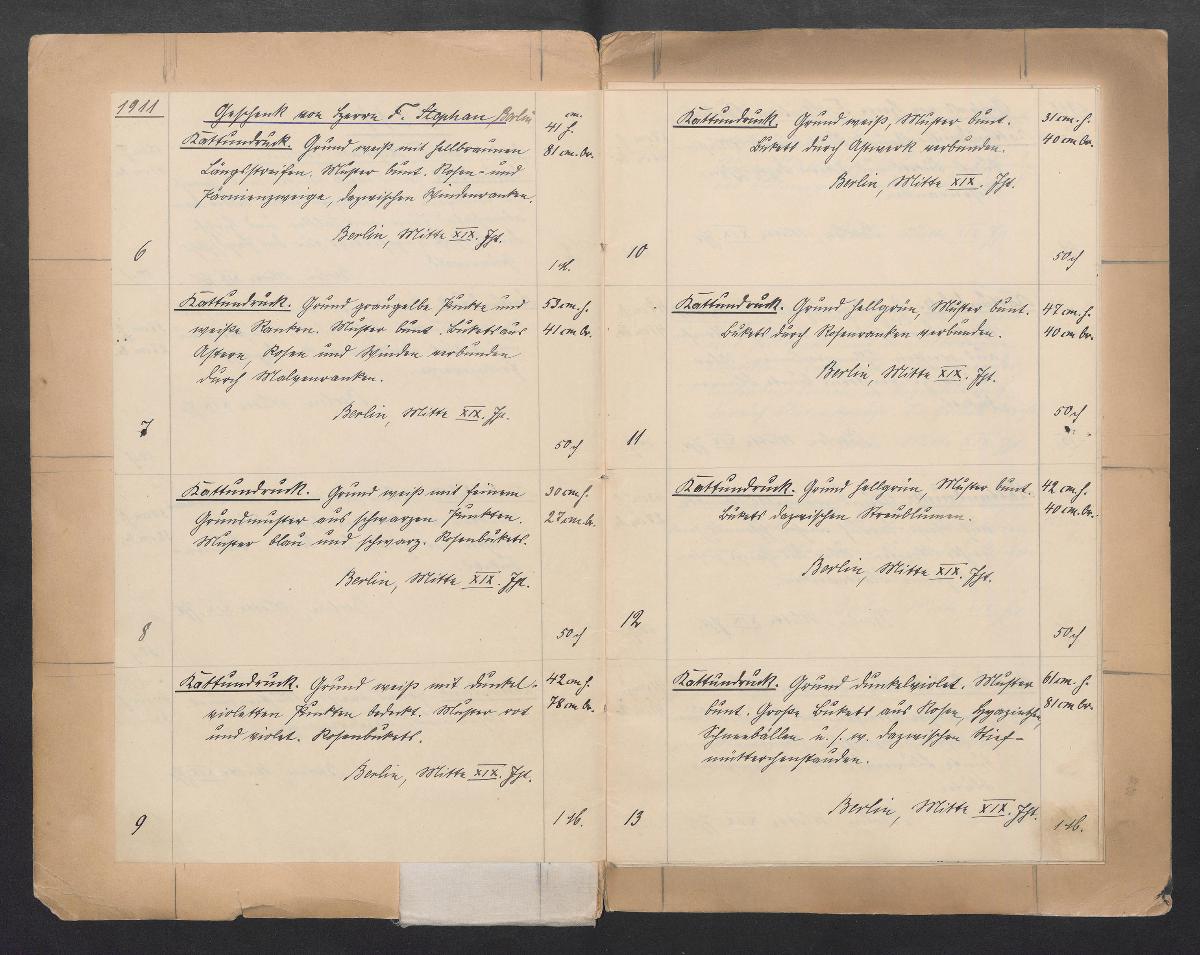 1911
Geschenk von Herrn F. Stephan, Berlin
Kattundruck. Grund weiß mit hellbraunen
Längsstreifen. Muster bunt. Rosen- und
Päonienzweige, dazwischen Windenranken.
Berlin, Mitte XIX. Jht.
cm.
41 h.
81 cm. br.
6
1 M.
Kattundruck. Grund graugelbe Punkte und
weiße Ranken. Muster bunt. Bukets aus
Astern, Rosen und Winden verbunden
durch Malvenranken.
Berlin, Mitte XIX. Jht.
53 cm. h.
41 cm br.
7
50 ₰
Kattundruck. Grund weiß mit feinem
Grundmuster aus schwarzen Punkten.
Muster blau und schwarz. Rosenbukets.
Berlin, Mitte XIX. Jht.
30 cm h.
27 cm. br.
8
50 ₰
Kattundruck. Grund weiß mit dunkel-
violetten Punkten bedeckt. Muster rot
und violet. Rosenbukets.
Berlin, Mitte XIX. Jht.
42 cm h.
78 cm br.
9
1 M.
Kattundruck. Grund weiß, Muster bunt.
Bukets durch Astwerk verbunden.
Berlin, Mitte XIX. Jht.
31 cm. h.
40 cm br.
10
50 ₰
Kattundruck. Grund hellgrün, Muster bunt.
Bukets durch Rosenranken verbunden.
Berlin, Mitte XIX. Jht.
47 cm. h.
40 cm br.
11
50 ₰
Kattundruck. Grund hellgrün, Muster bunt.
Bukets dazwischen Streublumen.
Berlin, Mitte XIX. Jht.
42 cm h.
40 cm. br.
12
50 ₰
Kattundruck. Grund dunkelviolet. Muster
bunt. Große Bukets aus Rosen, Hyazinthen,
Schneebällen u. s. w. dazwischen Stief-
mütterchenstauden.
Berlin, Mitte XIX. Jht.
61 cm. h.
81 cm br.
13
1 M.